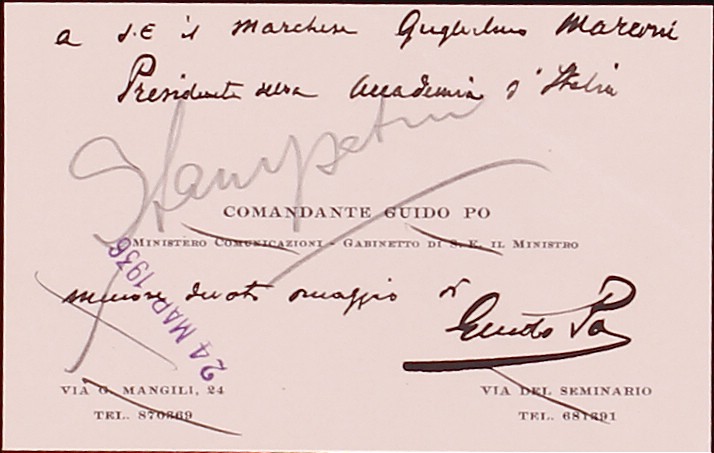 a S.E il Marchese Guglielmo Marconi
Presidente della Accademia d'Italia
COMANDANTE GUIDO PO
MINISTERO COMUNICAZIONI - GABINETTO DI S. E. IL MINISTRO
24 MAR 1936
memore devoto omaggio di
Guido Po
VIA G. MANGILI, 24
TEL. 870369
VIA DEL SEMINARIO
TEL. 681391